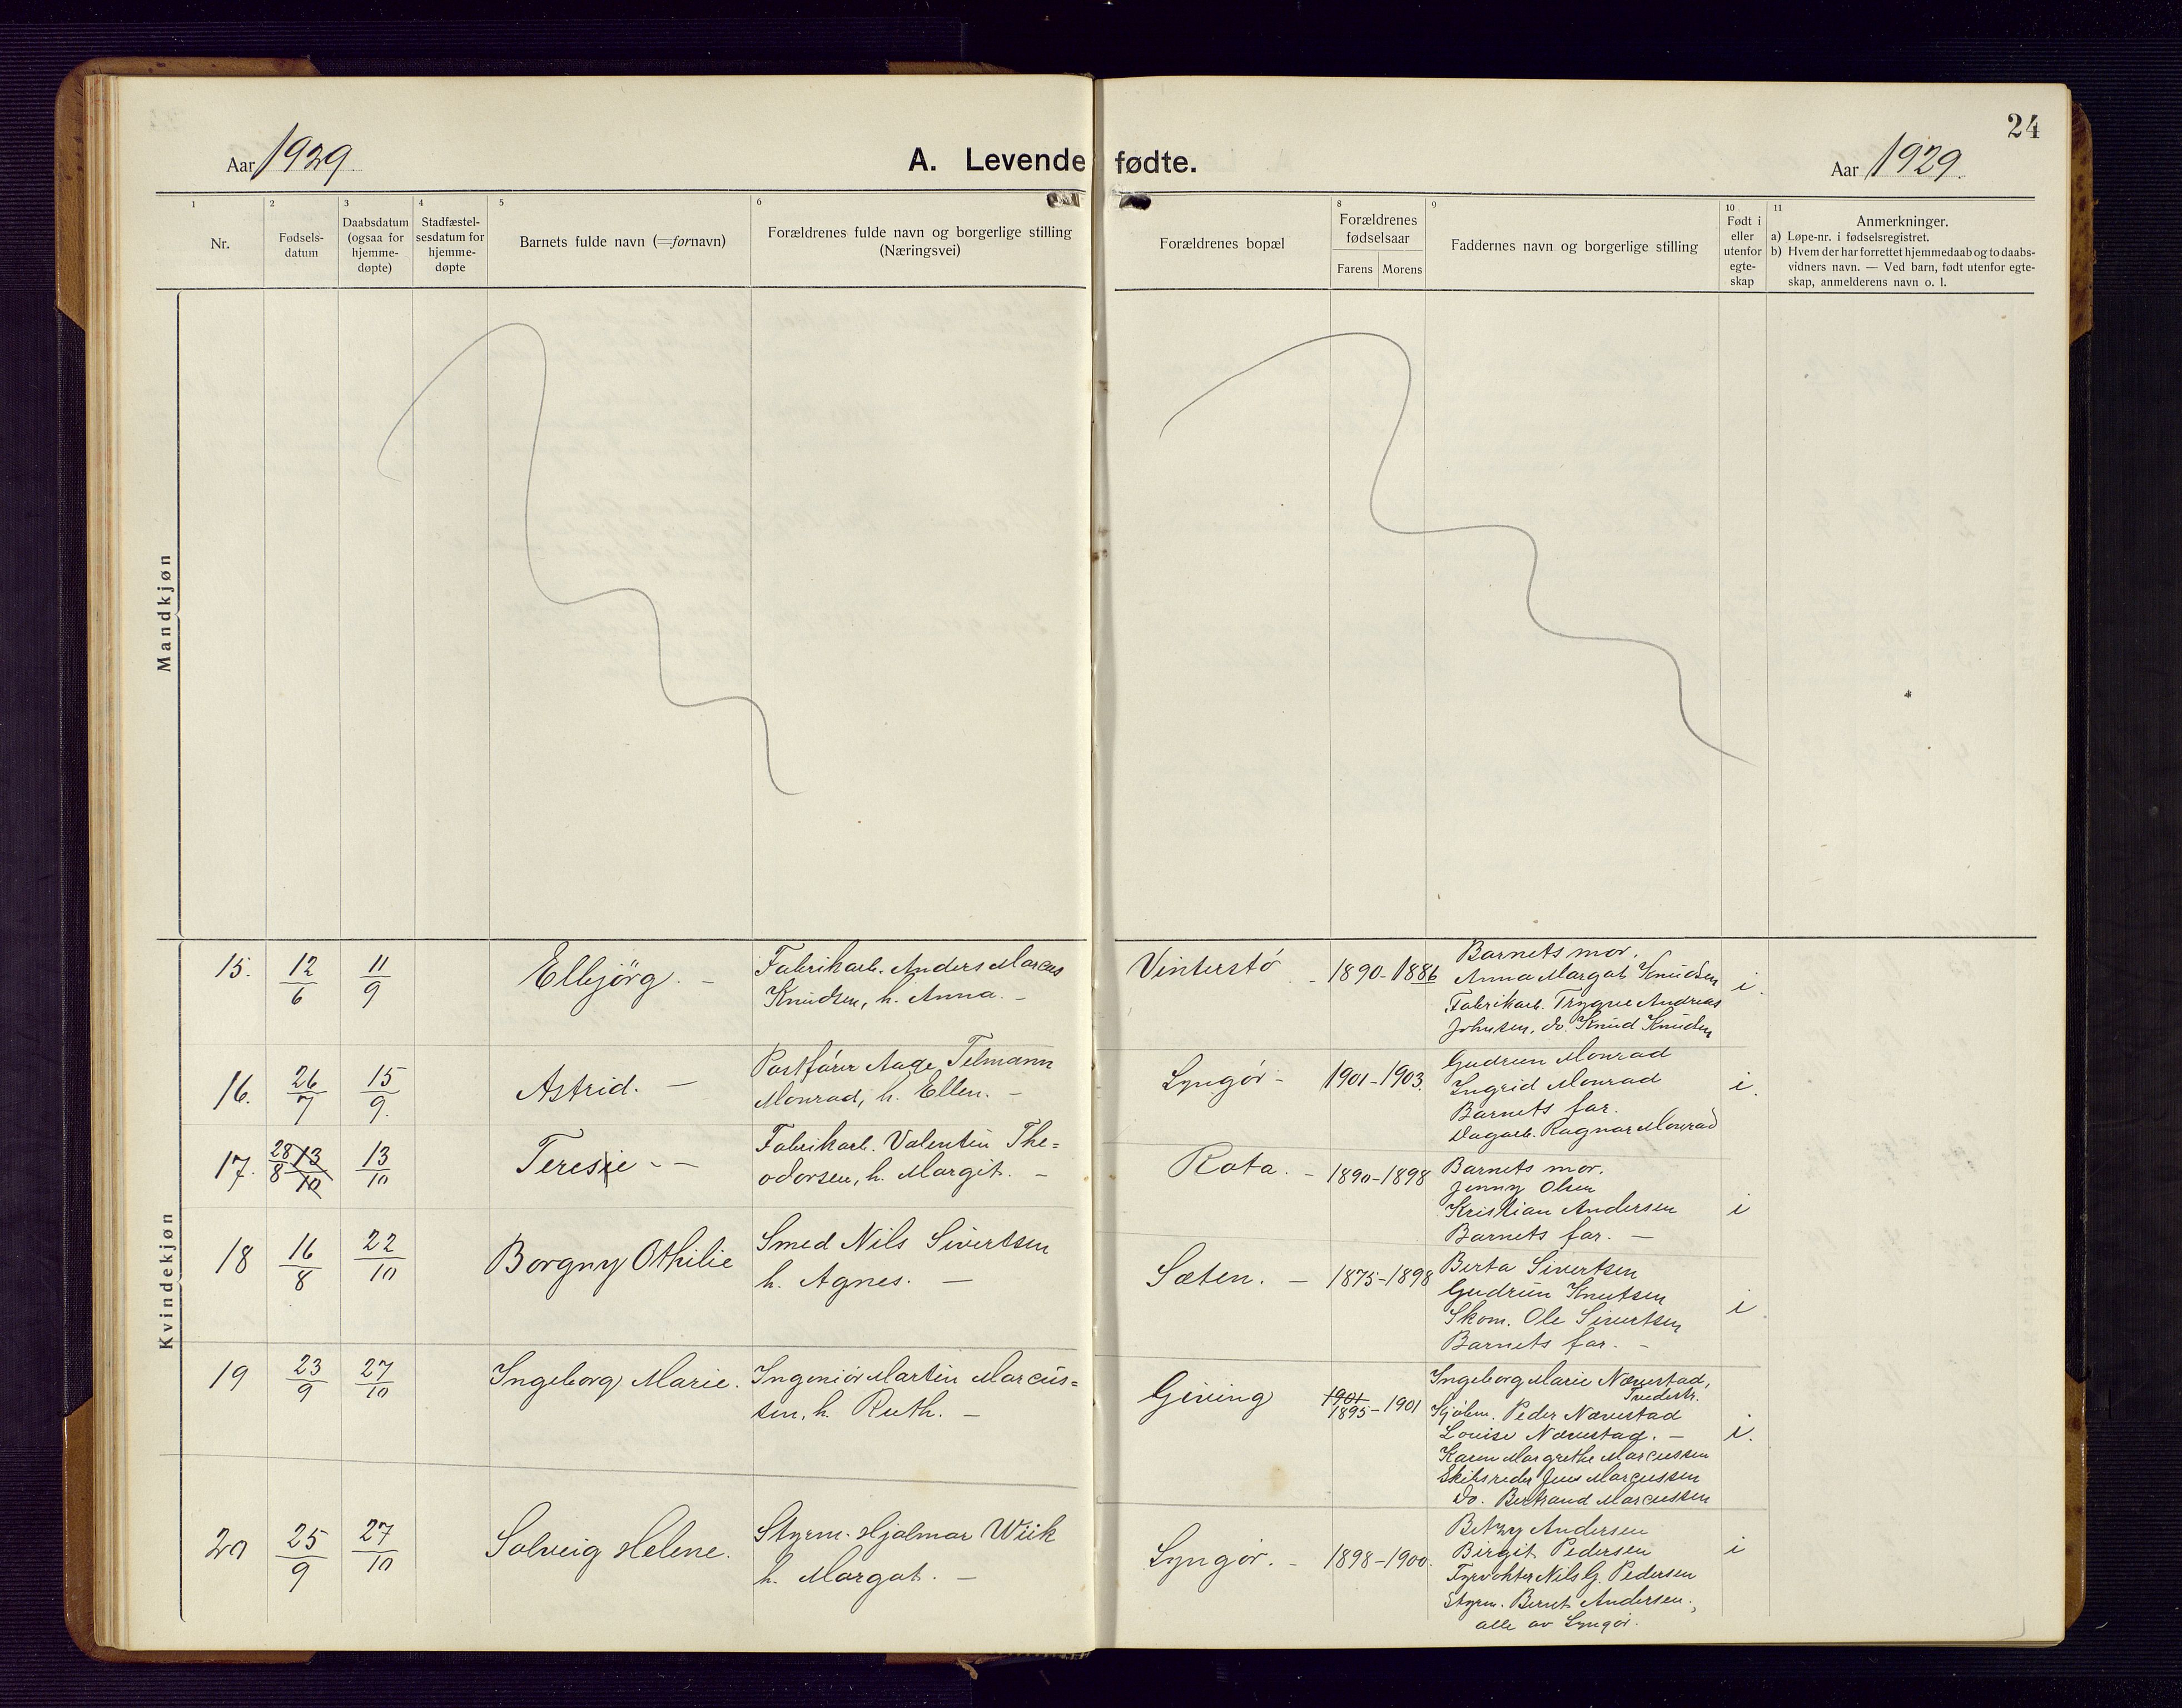 24
Aar 1929.
A. Levende fødte.
Aar 1929.
1
Nr.
2
Fødsels-
datum
3
Daabsdatum
(ogsaa for
hjemme-
døpte)
4
Stadfæstel-
sesdatum for
hjemme-
døpte
5
Barnets fulde navn (=fornavn)
6
Forældrenes fulde navn og borgerlige stilling
(Næringsvei)
Forældrenes bopæl
8
Forældrenes
fødselsaar
Farens Morens
9
Faddernes navn og borgerlige stilling
10
Født i
eller
utenfor
egte-
skap
11
Anmerkninger.
a) Løpe-nr. i fødselsregistret.
b) Hvem der har forrettet hjemmedaab og to daabs-
vidners navn. — Ved barn, født utenfor egte-
skap, anmelderens navn o. l.
Mandkjøn
Kvindekjøn
15. 12/6 11/9 Elbjörg. –
Fabrikarb. Anders Marcus
Knudsen, h. Anna. –
Vinterstø – 1890-1886
Barnets mor.
Anna Margat Knudsen
Fabrikarb. Trygve Andreas
Johnsen, do. Knud Knudsen
i.
16. 26/7 15/9. Astrid. –
Postfører Aage Telmann
Monrad, h. Ellen. –
Lyngør – 1901-1903.
Gudrun Monrad
Ingrid Monrad
Barnets far.
Dagarb. Ragnar Monrad
i.
17. 28/8 13/10 13/10 Teresie - –
Fabrikarb. Valentin The=
odorsen, h. Margit. –
Rota. – 1890-1898
Barnets mor.
Jenny Olsen
Kristian Andersen
Barnets far. –
i
18 16/8 22/10 Borgny Othilie
Smed Nils Sivertsen
h. Agnes. –
Sæten. – 1875-1898
Berta Sivertsen
Gudrun Knutsen
Skom. Ole Sivertsen
Barnets far. –
i.
19 23/9 27/10 Ingeborg Marie.
Ingeniør Martin Marcus=
sen, h. Ruth. –
Giving 1901 1895-1901
Ingeborg Marie Nævestad,
Tvedestr.
Kjøbm. Peder Nævestad
Louise Nævestad. –
Karen Margrethe Marcussen
Skibsreder Jens Marcussen
do. Bertrand Marcussen
i.
20 25/9 27/10 Solveig Helene.
Styrm. Hjalmar Wiik
h. Margat. –
Lyngør. – 1898-1900.
Betzy Andersen
Birgit Pedersen
Fyrvokter Nils G. Pedersen
Styrm. Bernt Andersen.,
alle av Lyngør.
i